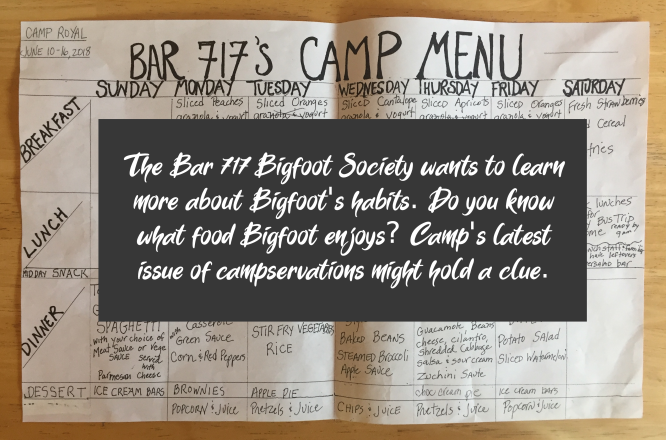 CAMP ROYAL
JUNE 10-16, 2018
BAR 717'S CAMP MENU
SUNDAY MONDAY TUESDAY WEDNESDAY THURSDAY FRIDAY SATURDAY
BREAKFAST
Sliced Peaches
granola & yogurt
Sliced Oranges
granola & yogurt
Sliced Cantalope
granola & yogurt
Sliced Apricots
granola & yogurt
Sliced Oranges
granola & yogurt
Fresh Strawberries
Cereal
The Bar 717 Bigfoot Society wants to learn
more about Bigfoot's habits. Do you know
what food Bigfoot enjoys? Camp's latest
issue of campservations might hold a clue.
LUNCH
lunches
for
Bus Trip
ready by
bar
MIDDAY SNACK
DINNER
SPAGHETTI
with your choice of
Meat Sauce or Vege
SAUCE served
with
Parmesan Cheese
with Casserole
Green Sauce
Corn & Red Peppers
STIR FRY VEGETABLES
RICE
BAKED BEANS
STEAMED BROCCOLI
Apple Sauce
Guacamole, Beans
cheese, cilantro,
shredded cabbage
salsa & sour cream
Zucchini Saute
POTATO SALAD
Sliced Watermelon
DESSERT
ICE CREAM BARS
BROWNIES
APPLE PIE
choc cream pie
ice cream bars
POPCORN & JUICE
Pretzels & Juice
CHIPS & JUICE
Pretzels & Juice
Popcorn & Juice